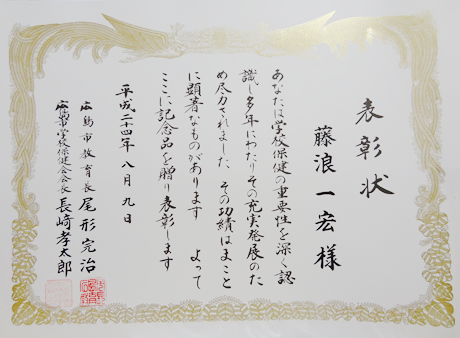 表彰状
藤浪一宏様
あなたは学校保健の重要性を深く認
識し多年にわたりその充実発展のた
め尽力されました その功績はまこと
に顕著なものがあります よって
ここに記念品を贈り表彰します
平成二十四年八月九日
広島市教育長 尾形完治
広島市学校保健会会長 長﨑孝太郎